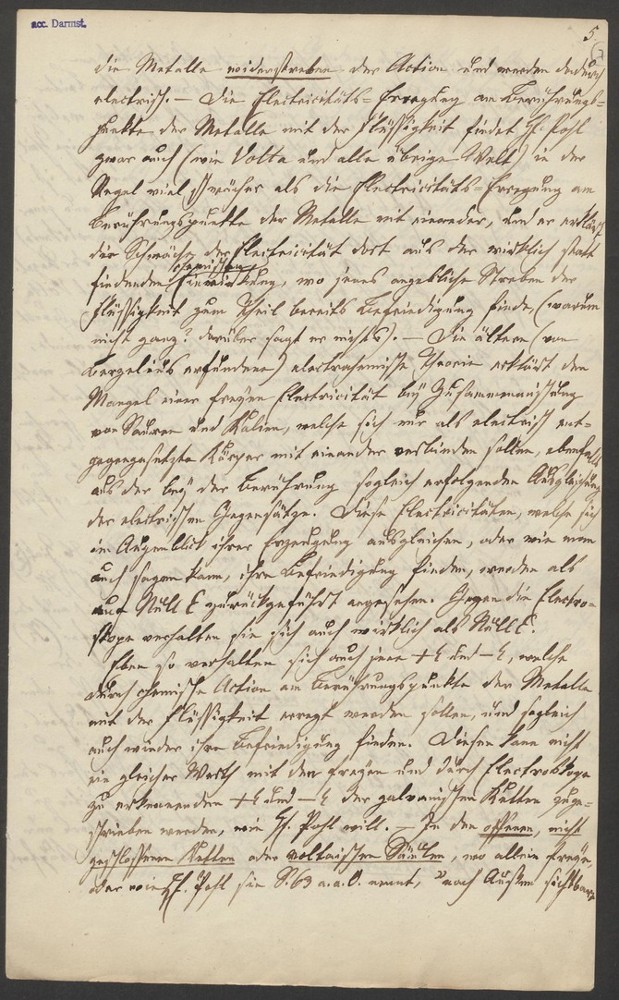 acc. Darmst.
5
die Metalle widerstreben der Action und werden dadurch
electrisch. — Die Electricitäts-Erregung am Berührungs-
punkte der Metalle mit der Flüssigkeit findet H. Pohl
zwar auch (wie Volta und alle übrige Welt) in der
Regel viel schwächer als die Electricitäts-Erregung am
Berührungspunkte der Metalle mit einander, und er erklärt
die Schwäche der Electricität dort aus der wirklich statt
chemischen
findenden Einwirkung, wo jenes angebliche Streben der
Flüssigkeit zum Theil bereits Befriedigung finde, (warum
nicht ganz? darüber sagt er nichts). — Die ältere (von
Berzelius erfundene) electrochemische Theorie erklärt den
Mangel einer freyen Electricität bey Zusammenmischung
von Säuren und Kalien, welche sich nur als electrisch ent-
gegengesetzte Körper mit einander verbinden sollen, ebenfalls
aus der bey der Berührung sogleich erfolgenden Ausgleichung
der electrischen Gegensätze. Diese Electricitäten, welche sich
im Augenblick ihrer Erzeugung ausgleichen, oder wie man
auch sagen kann, ihre Befriedigung finden, werden als
auf Null E zurückgeführt angesehen. Gegen die Electro-
skope verhalten sie sich auch wirklich als Null E.
Eben so verhalten sich auch jene + E und — E, welche
durch chemische Action am Berührungspunkte der Metalle
mit der Flüssigkeit erregt werden sollen, und sogleich
auch wieder ihre Befriedigung finden. Diesen kann nicht
ein gleicher Werth mit den freyen und durch Electroskope
zu erkennenden + E und — E der galvanischen Ketten zuge-
schrieben werden, wie H. Pohl will. — In den offenen, nicht
geschlossenen Ketten oder voltaischen Säulen, wo allein freye,
oder wie H. Pohl sie S. 63 a. a. O. nennt, nach Außen sichtbare